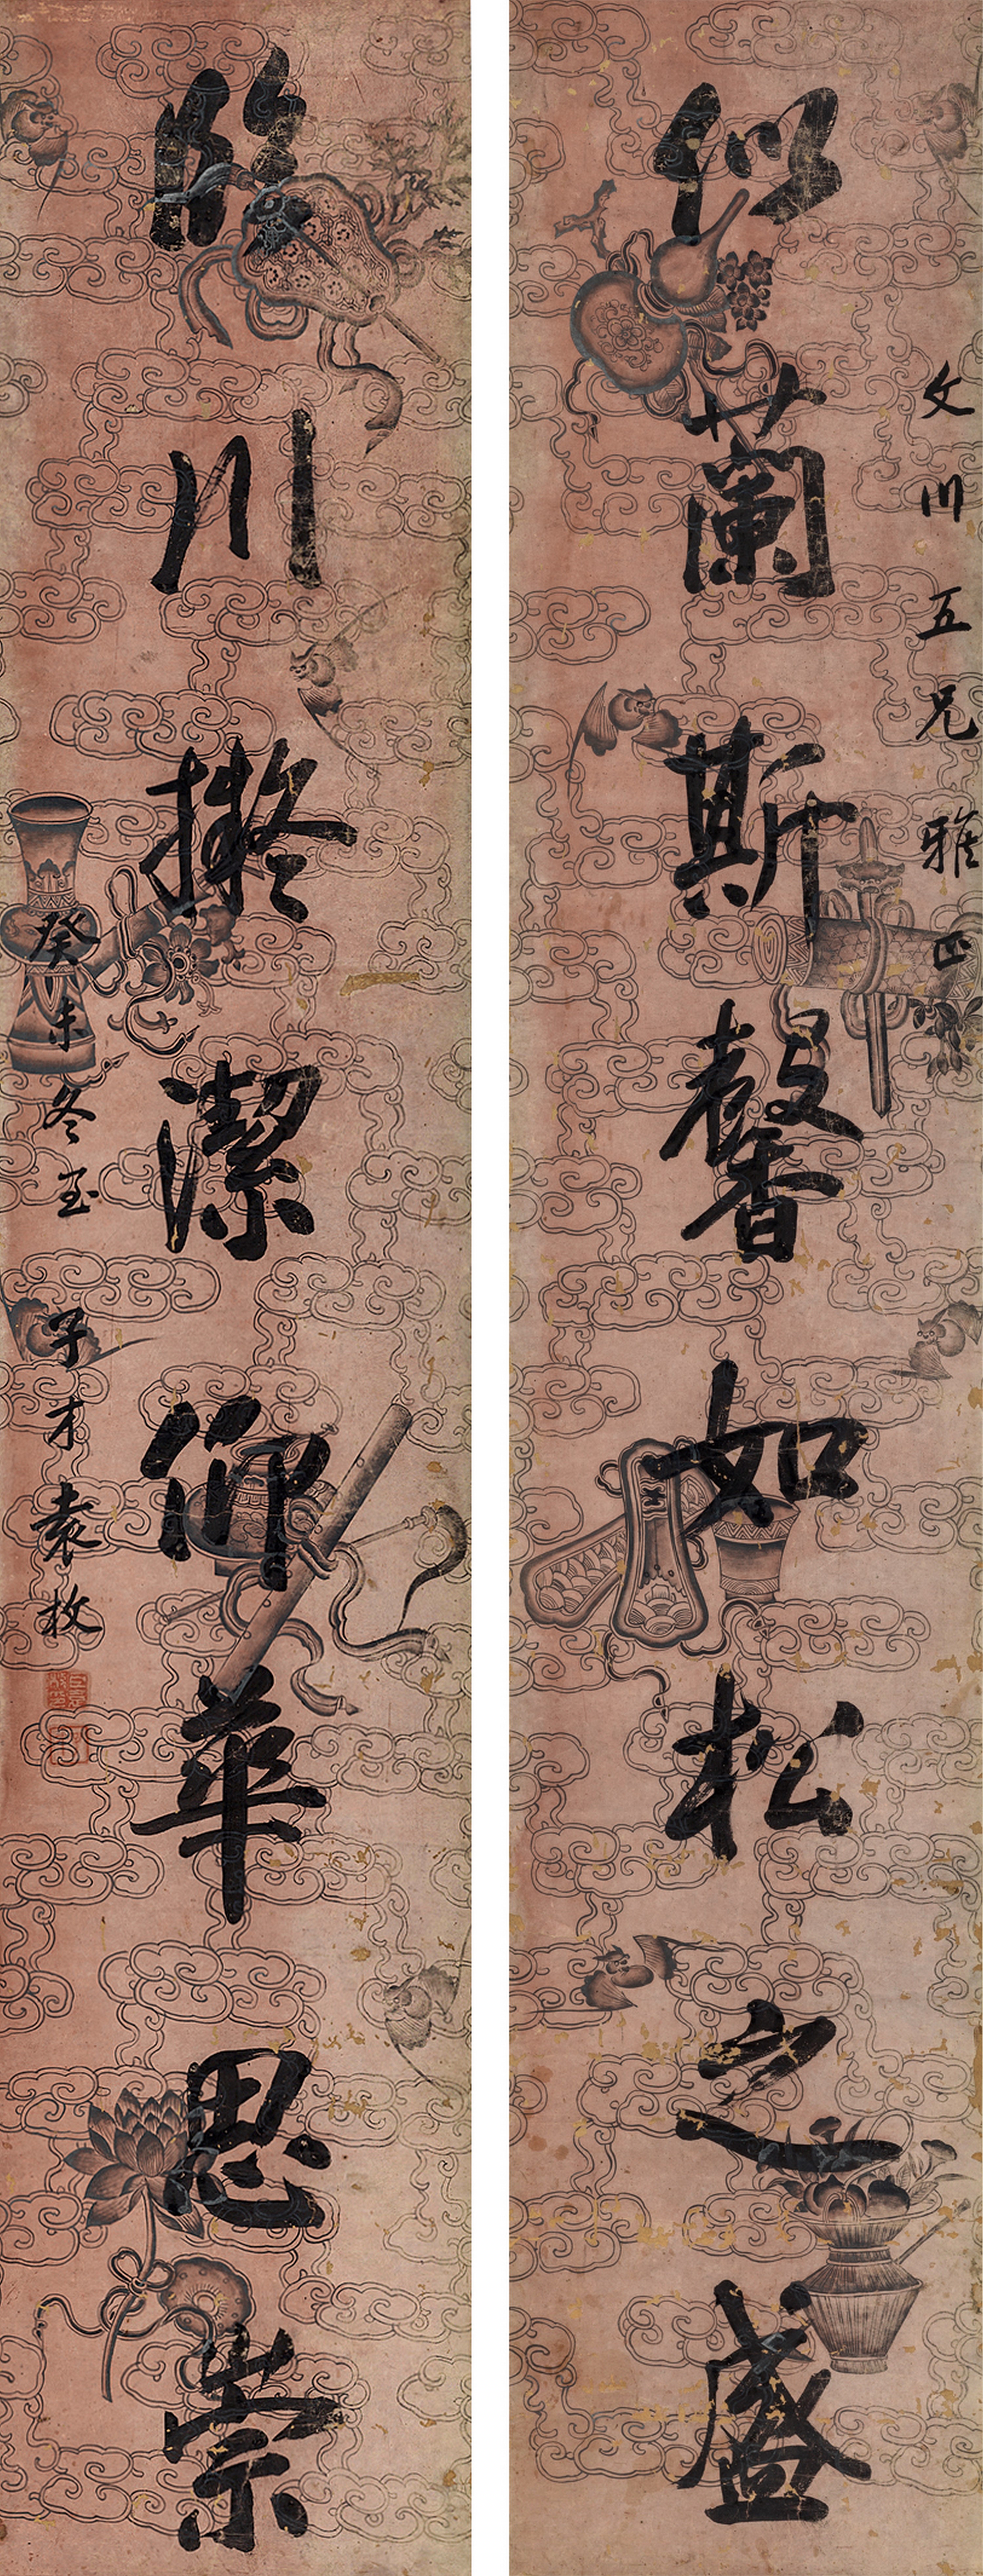 文川五兄雅正
似蘭斯馨如松之盛
臨川擬潔仰華思崇
癸未冬至
子才袁枚